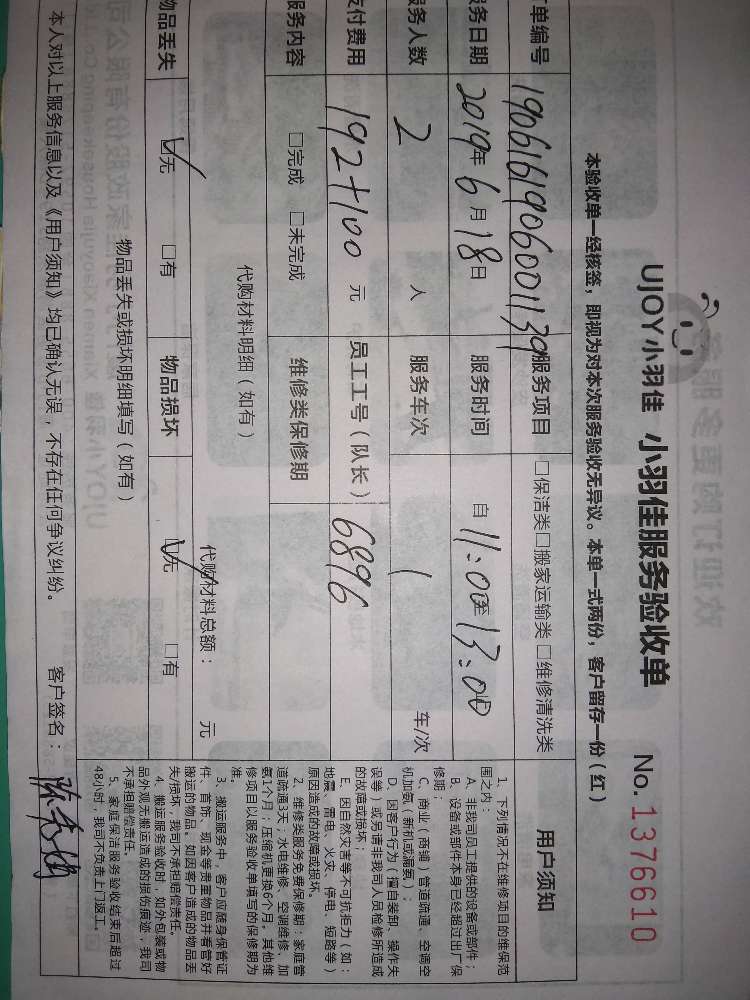 UJOY小羽佳 小羽佳服务验收单 No. 1376610
本验收单一经核签，即视为对本次服务验收无异议。本单一式两份，客户留存一份（红）
单编号 1906161906001139 服务项目 □保洁类□搬家运输类 □维修清洗类
务日期 2019年6月18日 服务时间 自11:00至13:00
务人数 2 人 服务车次 1 车/次
付费用 192+100 元 员工工号（队长） 6896
服务内容 □完成 □未完成 维修类保修期
代购材料明细（如有）
代购材料总额： 元
物品丢失 □无 □有 物品损坏 □无 □有
物品丢失或损坏明细填写（如有）
本人对以上服务信息以及《用户须知》均已确认无误，不存在任何争议纠纷。 客户签名：
用户须知
1、下列情况不在维修项目的维保范
围之内：
A、非我司员工提供的设备或部件；
B、设备或部件本身已经超过出厂保
修期；
C、商业（商铺）管道疏通、空调空
机加氨（新机或漏氨）；
D、因客户行为（擅自装卸、操作失
误等）或另请非我司人员检修所造成
的故障或损坏；
E、因自然灾害等不可抗拒力（如：
地震、雷电、火灾、停电、短路等）
原因造成的故障或损坏。
2、维修类服务免费保修期：家庭管
道疏通3天；水电维修、空调维修、加
氨1个月；压缩机更换6个月。其他维
修项目以服务验收单填写的保修期为
准。
3、搬运服务中，客户应随身保管证
件、首饰、现金等贵重物品并看管好
搬运的物品。如因客户造成的物品丢
失/损坏，我司不承担赔偿责任。
4、搬运服务验收时，如外包装或物
品外观无搬运造成的损伤痕迹，我司
不承担赔偿责任。
5、家庭保洁服务验收结束后超过
48小时，我司不负责上门返工。